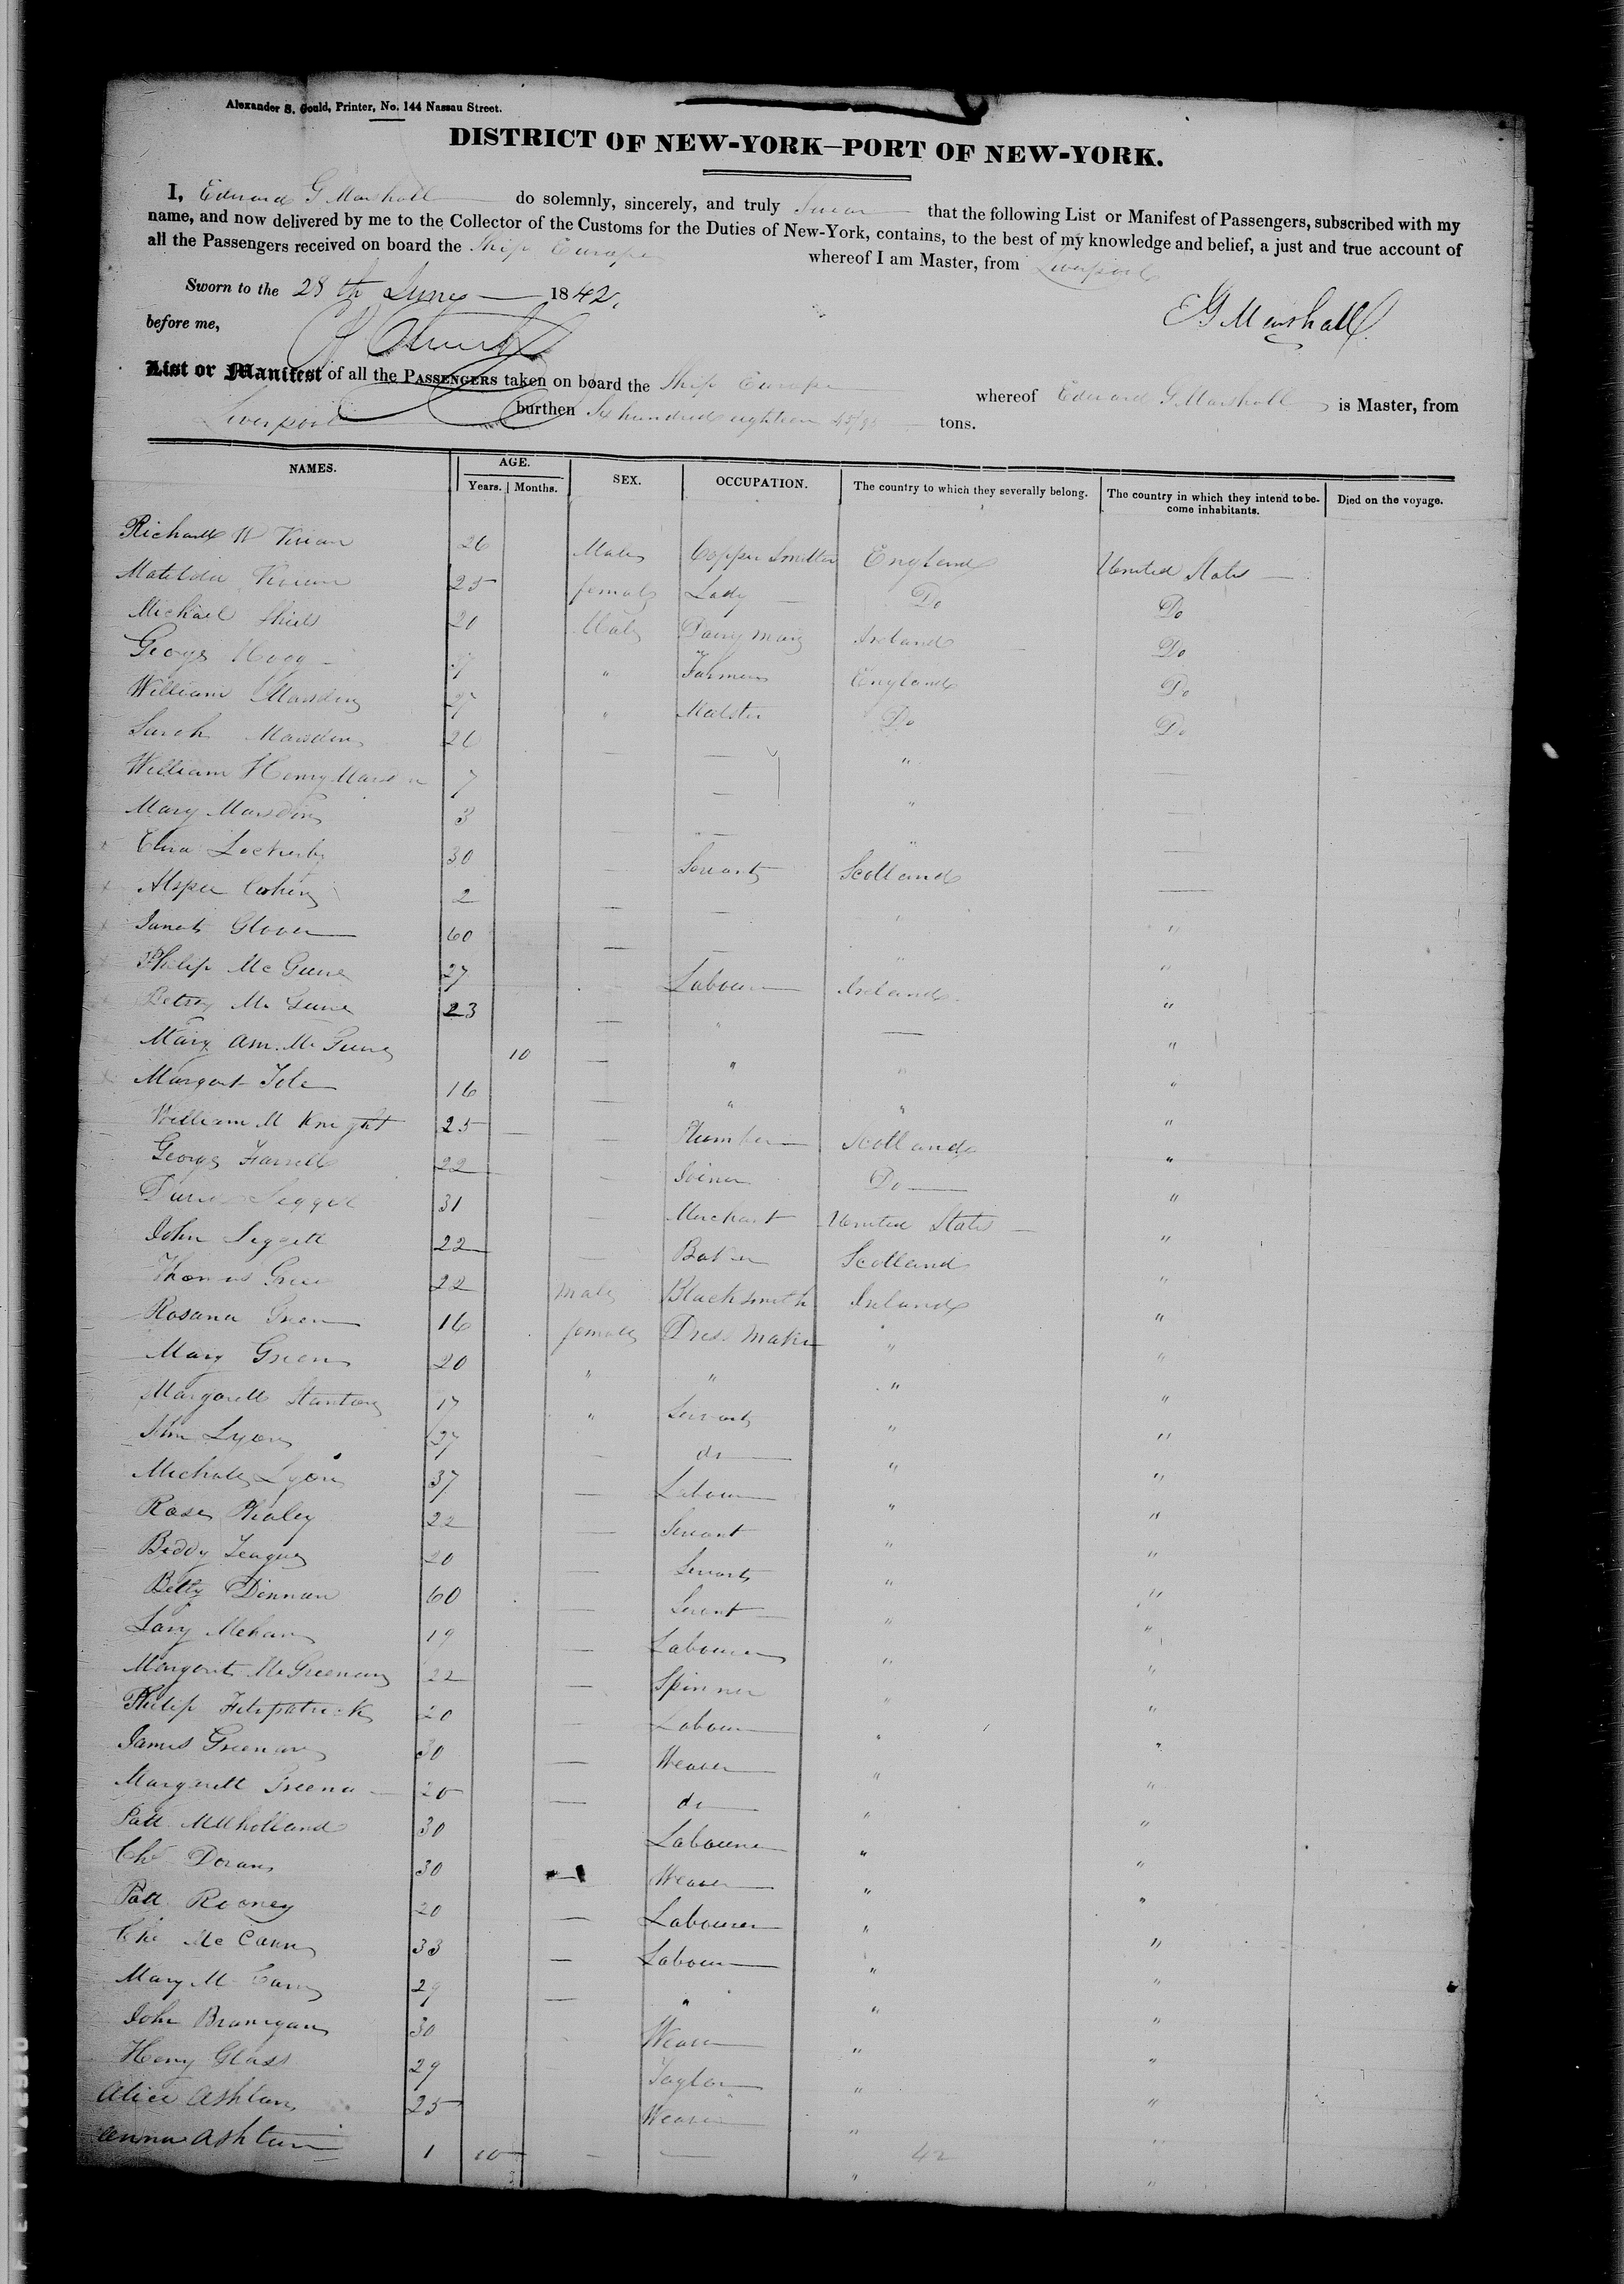 Alexander S. Gould, Printer, No. 144 Nassau Street.
DISTRICT OF NEW-YORK—PORT OF NEW-YORK.
I, Edward G Marshall do solemnly, sincerely, and truly Swear that the following List or Manifest of Passengers, subscribed with my
name, and now delivered by me to the Collector of the Customs for the Duties of New-York, contains, to the best of my knowledge and belief, a just and true account of
all the Passengers received on board the Ship Europe whereof I am Master, from Liverpool
Sworn to the 28th June 1842.
before me, E G Marshall
List or Manifest of all the PASSENGERS taken on board the Ship Europe whereof Edward G Marshall is Master, from
Liverpool burthen Six hundred eighteen tons.
NAMES. AGE. SEX. OCCUPATION. The country to which they severally belong. The country in which they intend to become inhabitants. Died on the voyage.
Years. Months.
Richard Vivian 26 Male Copper Smelter England United States
Matilda Vivian 25 female Lady Do Do
Michael Shiels 20 Male Ireland Do
George Hogg " Farmer England Do
William Marsden 27 " Malster Do Do
Sarah Marsden 26 — — "
William Henry Marsden 7 — " —
Mary Marsden 3 — — " —
Locherby 30 — Servant Scotland —
2 — — " —
Janet Glover 60 — — " "
Philip Mc Guire 27 Labourer Ireland "
Betsy Mc Guire 23 — " — "
Mary Ann Mc Guire 10 — " " "
Margart 16 — " " "
William M Knight 25 — Plumber Scotland "
George Farrell 22 — Joiner Do "
31 — Merchant United States "
John Leggett 22 — Baker Scotland "
Thomas Green 22 Male Blacksmith Ireland "
Rosana Green 16 female Dress Maker " "
Mary Green 20 " " " "
Margarett Stanton 17 " Servant " "
Ann Lyon 27 — do " "
Michale Lyon 37 — Labourer " "
Rose Healey 22 — Servant " "
Biddy Teague 20 — Servant " "
Betty Dinnan 60 — Servent " "
Mehan 19 — Labourer " "
Margaret McGreenan 22 — Spinner " "
Philip Fitzpatrick 20 — Labour " "
James Greenan 30 — Weaver " "
Margarett Greena 20 — do " "
Patt Mulholland 30 Labourer " "
Chs Doran 30 — Weaver " "
Patt Rooney 20 — Labourer " "
Mc Cann 33 — Labour " "
Mary Mc Cann 29 — " " "
John Branigan 30 Weaver " "
Henry Glass 29 Taylor " "
Alice Ashton 25 Weaver " "
Anna Ashton 1 10 — — " "
42